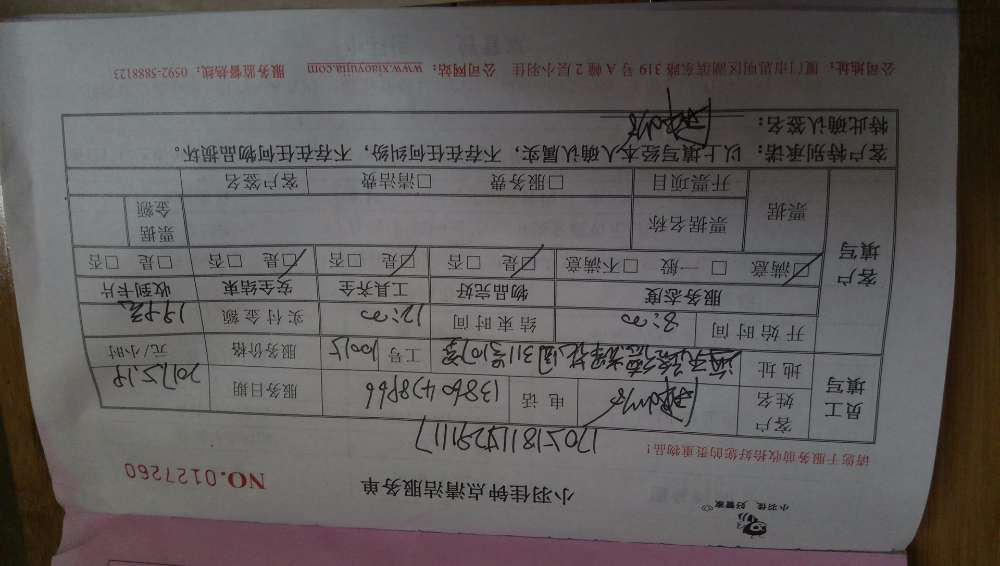 小羽佳 好管家
小羽佳钟点清洁服务单
NO.0127260
请您于服务前收拾好您的贵重物品！
170518115291117
员工填写
客户姓名 电话 13860478966 服务日期 2017.5.18
地址 工号 10015 服务价格 元/小时
开始时间 8:00 结束时间 12:00 实付金额
客户填写
服务态度 物品完好 工具齐全 安全结束 收到卡片
☑满意 □一般 □不满意 ☑是 □否 ☑是 □否 ☑是 □否 □是 □否
票据 票据名称 票据金额
开票项目 □服务费 □清洁费 客户签名
客户特别承诺：以上填写经本人确认属实，不存在任何纠纷，不存在任何物品损坏。
特此确认签名：
公司地址：厦门市思明区湖滨东路 319 号 A 幢 2 层小羽佳 公司网站：www.xiaoyujia.com 服务监督热线：0592-5888123